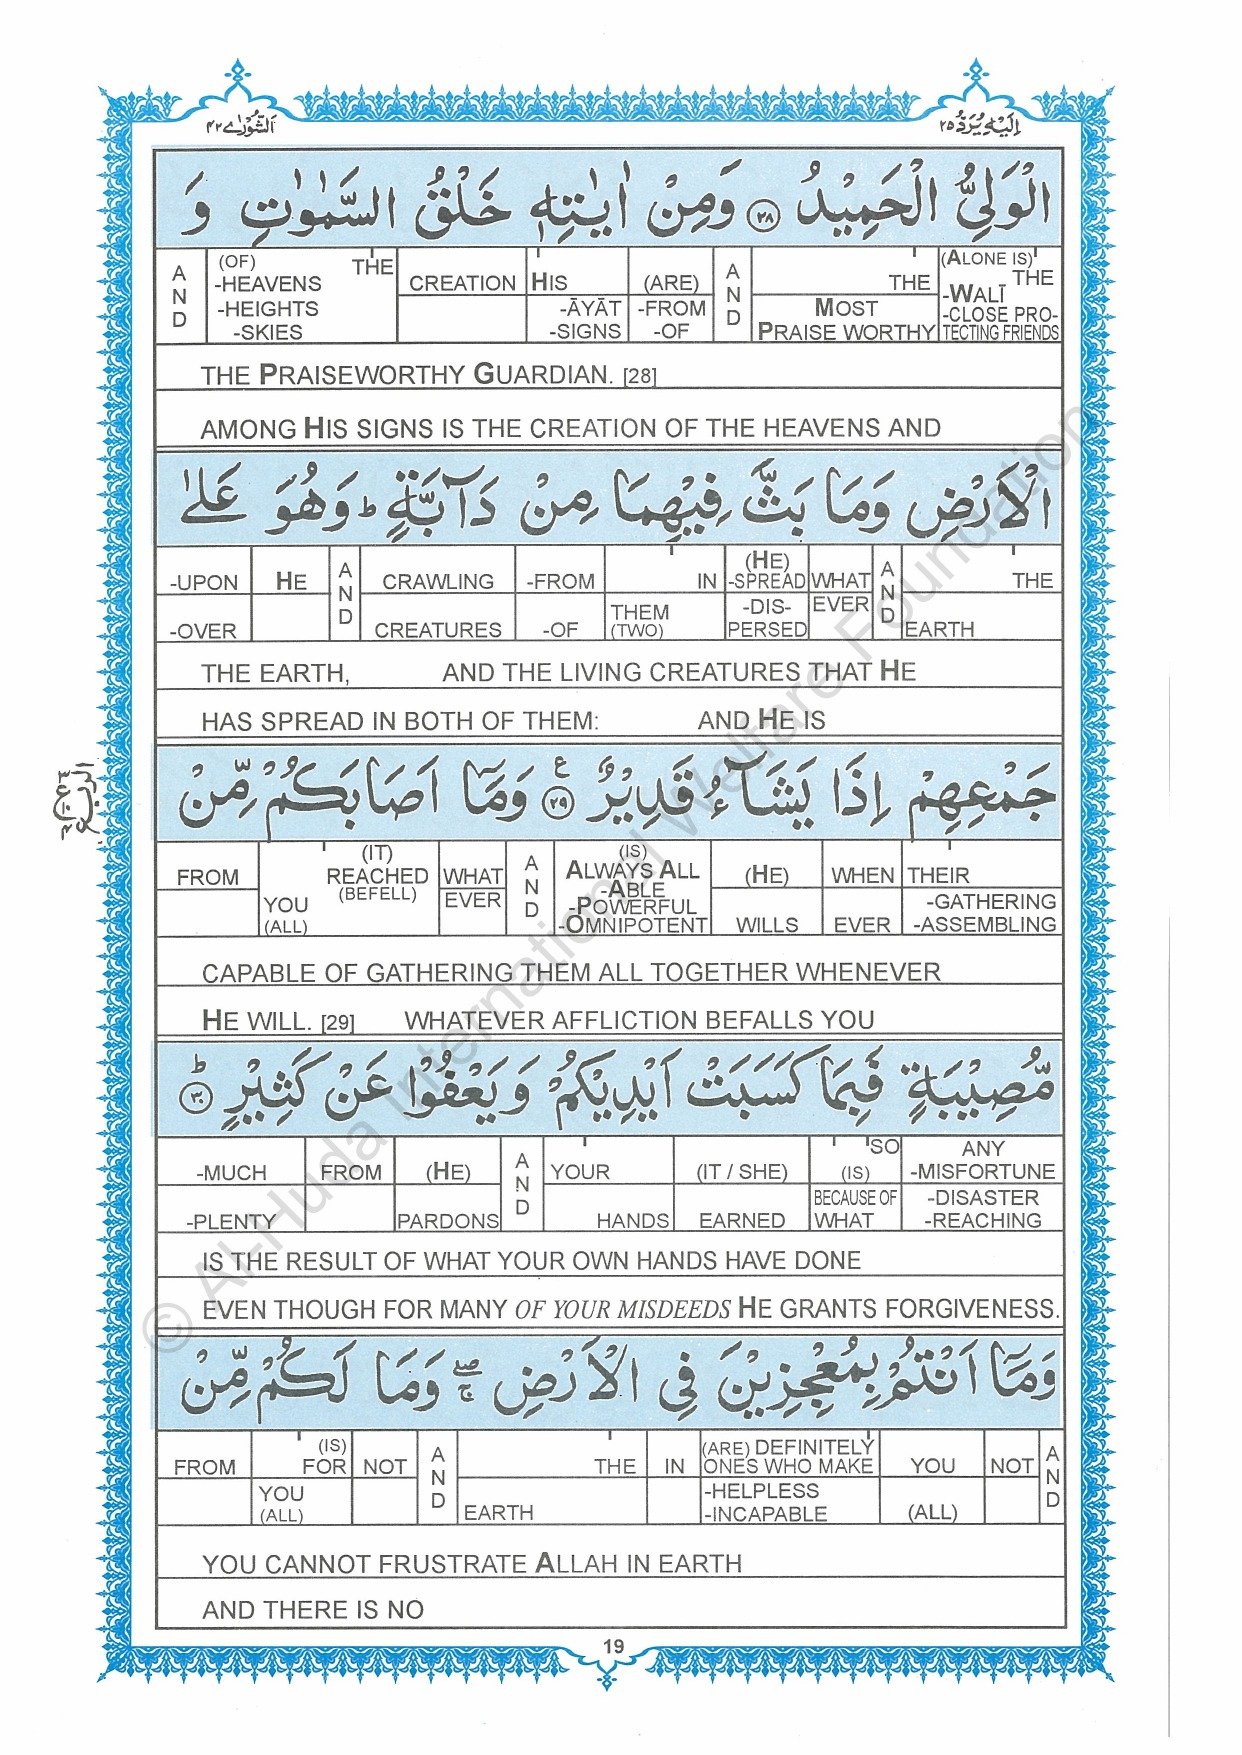 اَلشُّوْرٰى ٤٢
اِلَيْهِ يُرَدُّ ٢٥
الْوَلِيُّ الْحَمِيْدُ ٢٨ وَمِنْ اٰيٰتِهٖ خَلْقُ السَّمٰوٰتِ وَ
AND (OF) -HEAVENS -HEIGHTS -SKIES THE CREATION HIS -ĀYĀT -SIGNS (ARE) -FROM -OF AND THE MOST PRAISE WORTHY (ALONE IS) THE -WALĪ -CLOSE PRO- TECTING FRIENDS
THE PRAISEWORTHY GUARDIAN. [28]
AMONG HIS SIGNS IS THE CREATION OF THE HEAVENS AND
الْاَرْضِ وَمَا بَثَّ فِيْهِمَا مِنْ دَآبَّةٍ ط وَهُوَ عَلٰى
-UPON -OVER HE AND CRAWLING CREATURES -FROM -OF IN THEM (TWO) (HE) -SPREAD -DIS- PERSED WHAT EVER AND THE EARTH
THE EARTH, AND THE LIVING CREATURES THAT HE
HAS SPREAD IN BOTH OF THEM: AND HE IS
جَمْعِهِمْ اِذَا يَشَآءُ قَدِيْرٌ ٢٩ ع وَمَآ اَصَابَكُمْ مِّنْ
FROM YOU (ALL) (IT) REACHED (BEFELL) WHAT EVER AND (IS) ALWAYS ALL -ABLE -POWERFUL -OMNIPOTENT (HE) WILLS WHEN EVER THEIR -GATHERING -ASSEMBLING
CAPABLE OF GATHERING THEM ALL TOGETHER WHENEVER
HE WILL. [29] WHATEVER AFFLICTION BEFALLS YOU
مُّصِيْبَةٍ فَبِمَا كَسَبَتْ اَيْدِيْكُمْ وَيَعْفُوْا عَنْ كَثِيْرٍ ط ٣٠
-MUCH -PLENTY FROM (HE) PARDONS AND YOUR HANDS (IT / SHE) EARNED SO (IS) BECAUSE OF WHAT ANY -MISFORTUNE -DISASTER -REACHING
IS THE RESULT OF WHAT YOUR OWN HANDS HAVE DONE
EVEN THOUGH FOR MANY OF YOUR MISDEEDS HE GRANTS FORGIVENESS.
وَمَآ اَنْتُمْ بِمُعْجِزِيْنَ فِي الْاَرْضِ صلے ج وَمَا لَكُمْ مِّنْ
FROM (IS) FOR YOU (ALL) NOT AND THE EARTH IN (ARE) DEFINITELY ONES WHO MAKE -HELPLESS -INCAPABLE YOU (ALL) NOT AND
YOU CANNOT FRUSTRATE ALLAH IN EARTH
AND THERE IS NO
19
© Al-Huda International Welfare Foundation